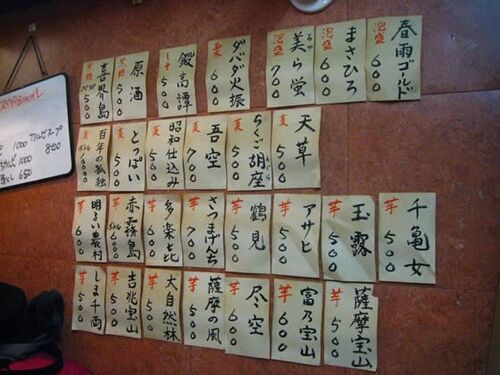 泡盛 春雨ゴールド 600
泡盛 まさひろ 600
泡盛 美ら蛍 700
栗 ダバダ火振 600
しそ 鍛高譚 500
黒糖 原酒 500
黒糖 喜界島 500
天草 500
らくご胡座 500
麦 吾空 700
麦 昭和仕込み 500
麦 とっぱい 500
麦 百年の孤独
芋 千亀女 500
芋 玉露 500
芋 アサヒ 500
芋 鶴見 500
芋 さつまげんち 700
芋 多楽七 600
芋 赤霧島
芋 明るい農村 600
芋 薩摩宝山 500
芋 富乃宝山 600
芋 尽空 600
芋 薩摩の風 500
芋 大自然林 500
芋 吉兆宝山
芋 しま千両 500
1000
800
1000
650